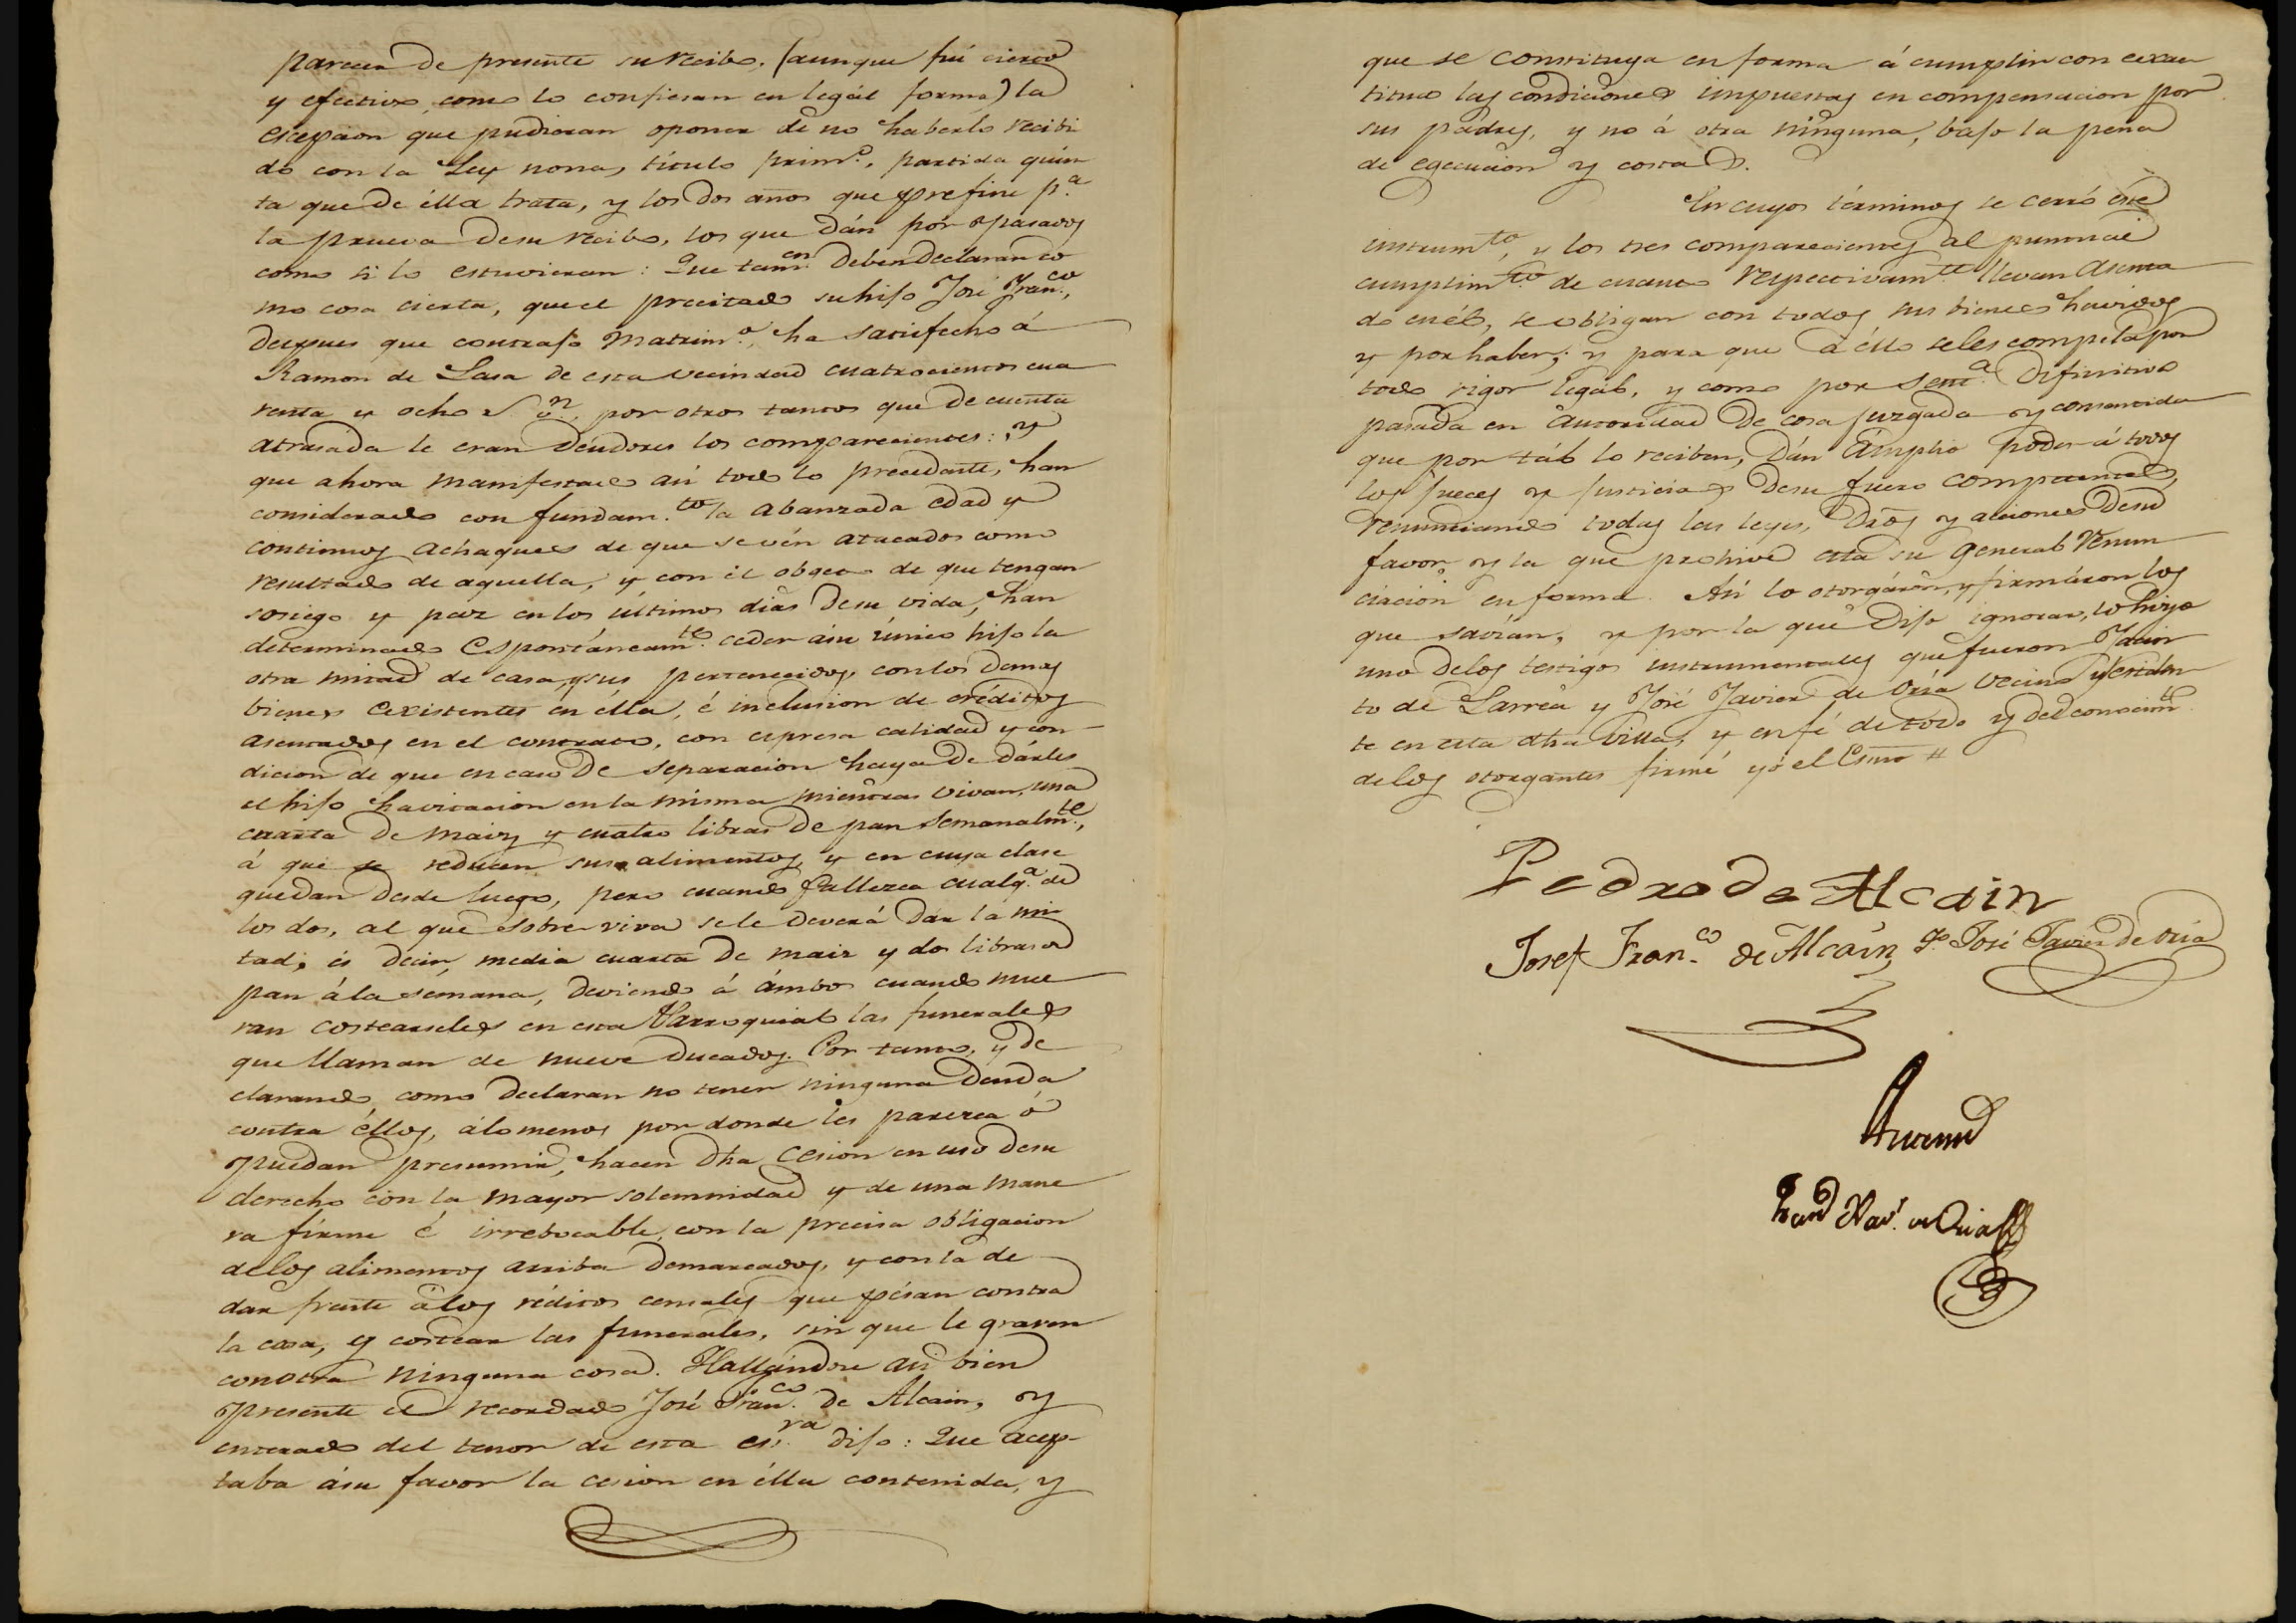 parecer de presente su recibo, (aunque fué cierto
y efectivo, como lo confiesan en legál forma) la
escepcion que pudieran oponer de no haberlo recibi
do con la Ley nona, título prim.º, partida quin
ta que de élla trata, y los dos años que prefine p.ª
la prueva de su recibo, los que dán por pasados
como si lo estuvieran: Que tam.en deben declarar co
mo cosa cierta, que el precitado su hijo José Fran.co,
despues que contrajo Matrim.º, ha satisfecho á
Ramon de Lasa de esta vecindad cuatrocientos cua
renta y ocho r.s v.n, por otros tantos que de cuenta
atrasada le eran deudores los comparecientes: Y
que ahora manifestado así todo lo precedente, han
considerado con fundam.to la abanzada edad y
continuos achaques de que se vén atacados como
resultado de aquella, y con el obgeto de que tengan
sosiego y paz en los últimos dias de su vida, han
determinado espontáneam.te ceder á su único hijo la
otra mitad de casa, y sus pertenecidos, con los demas
bienes existentes en élla, é inclusion de créditos
asentados en el contrato, con espresa calidad y con
dicion de que en caso de separacion haya de dárles
el hijo havitacion en la misma mientras vivan, una
cuarta de maiz y cuatro libras de pan semanalm.te,
á que se reducen sus alimentos, y en cuya clase
quedan desde luego, pero cuando fallezca cualq.ª de
los dos, al que sobre viva se le deverá dar la mi
tad, és decir, media cuarta de maiz y dos libras de
pan á la semana, deviendo á ámbos cuando mue
ran costearseles en esta Parroquial las funerales
que llaman de nueve ducados. Por tanto, y de
clarando, como declaran no tener ninguna deuda
contra éllos, álomenos por donde les parezca ó
puedan presumir, hacen dha cesion en uso de su
derecho con la mayor solemnidad y de una mane
ra firme é irrebocable, con la precisa obligacion
de los alimentos arriba demarcados, y con la de
dar frente á los réditos censales que pésan contra
la casa, y costear las funerales, sin que le graven
con otra ninguna cosa. Hallándose asi bien
presente el recordado José Fran.co de Alcain, y
enterado del tenor de esta ess.ra dijo: Que acep-
taba á su favor la cesion en élla contenida, y
que se constituya en forma á cumplir con exac
titud las condiciones impuestas en compensacion por
sus padres, y no á otra ninguna, bajo la pena
de egecucion y costas.
En cuyos términos se cerró éste
instrum.to, y los tres comparecientes al puntual
cumplim.to de cuanto respectivam.te llevan asenta
do en él, se obligan con todos sus bienes havidos
y por haber; y para que á éllo se les compéla por
todo rigor legál, y como por sent.ª difinitiva
pasada en autoridad de cosa juzgada y consentida
que por tál lo reciben, dán ámplio poder á todos
los jueces y justicias de su fuero competentes,
renunciando todas las leyes, dros y aciones de su
favor y la que prohive esta su general renun
ciacion en forma. Así lo otorgáron, y firmáron los
que savian, y por la que dijo ignorar, lo hizo
uno de los testigos instrumentales que fueron Jacin
to de Larrea y José Javier de Oria vecino y estan
te en esta dha Villa, y en fé de todo y del conocim.to
de los otorgantes firmé yó el Esno #
Pedro de Alcain
Josef Fran.co de Alcain, T.º José Javier de Oria
Antemí